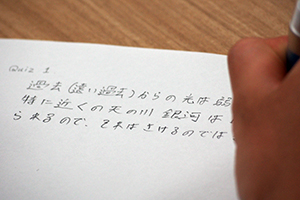 Quiz 1
過去(遠い過去)からの光は
特に近くの天の川 銀河は
ら来るので、それはさけるのでは